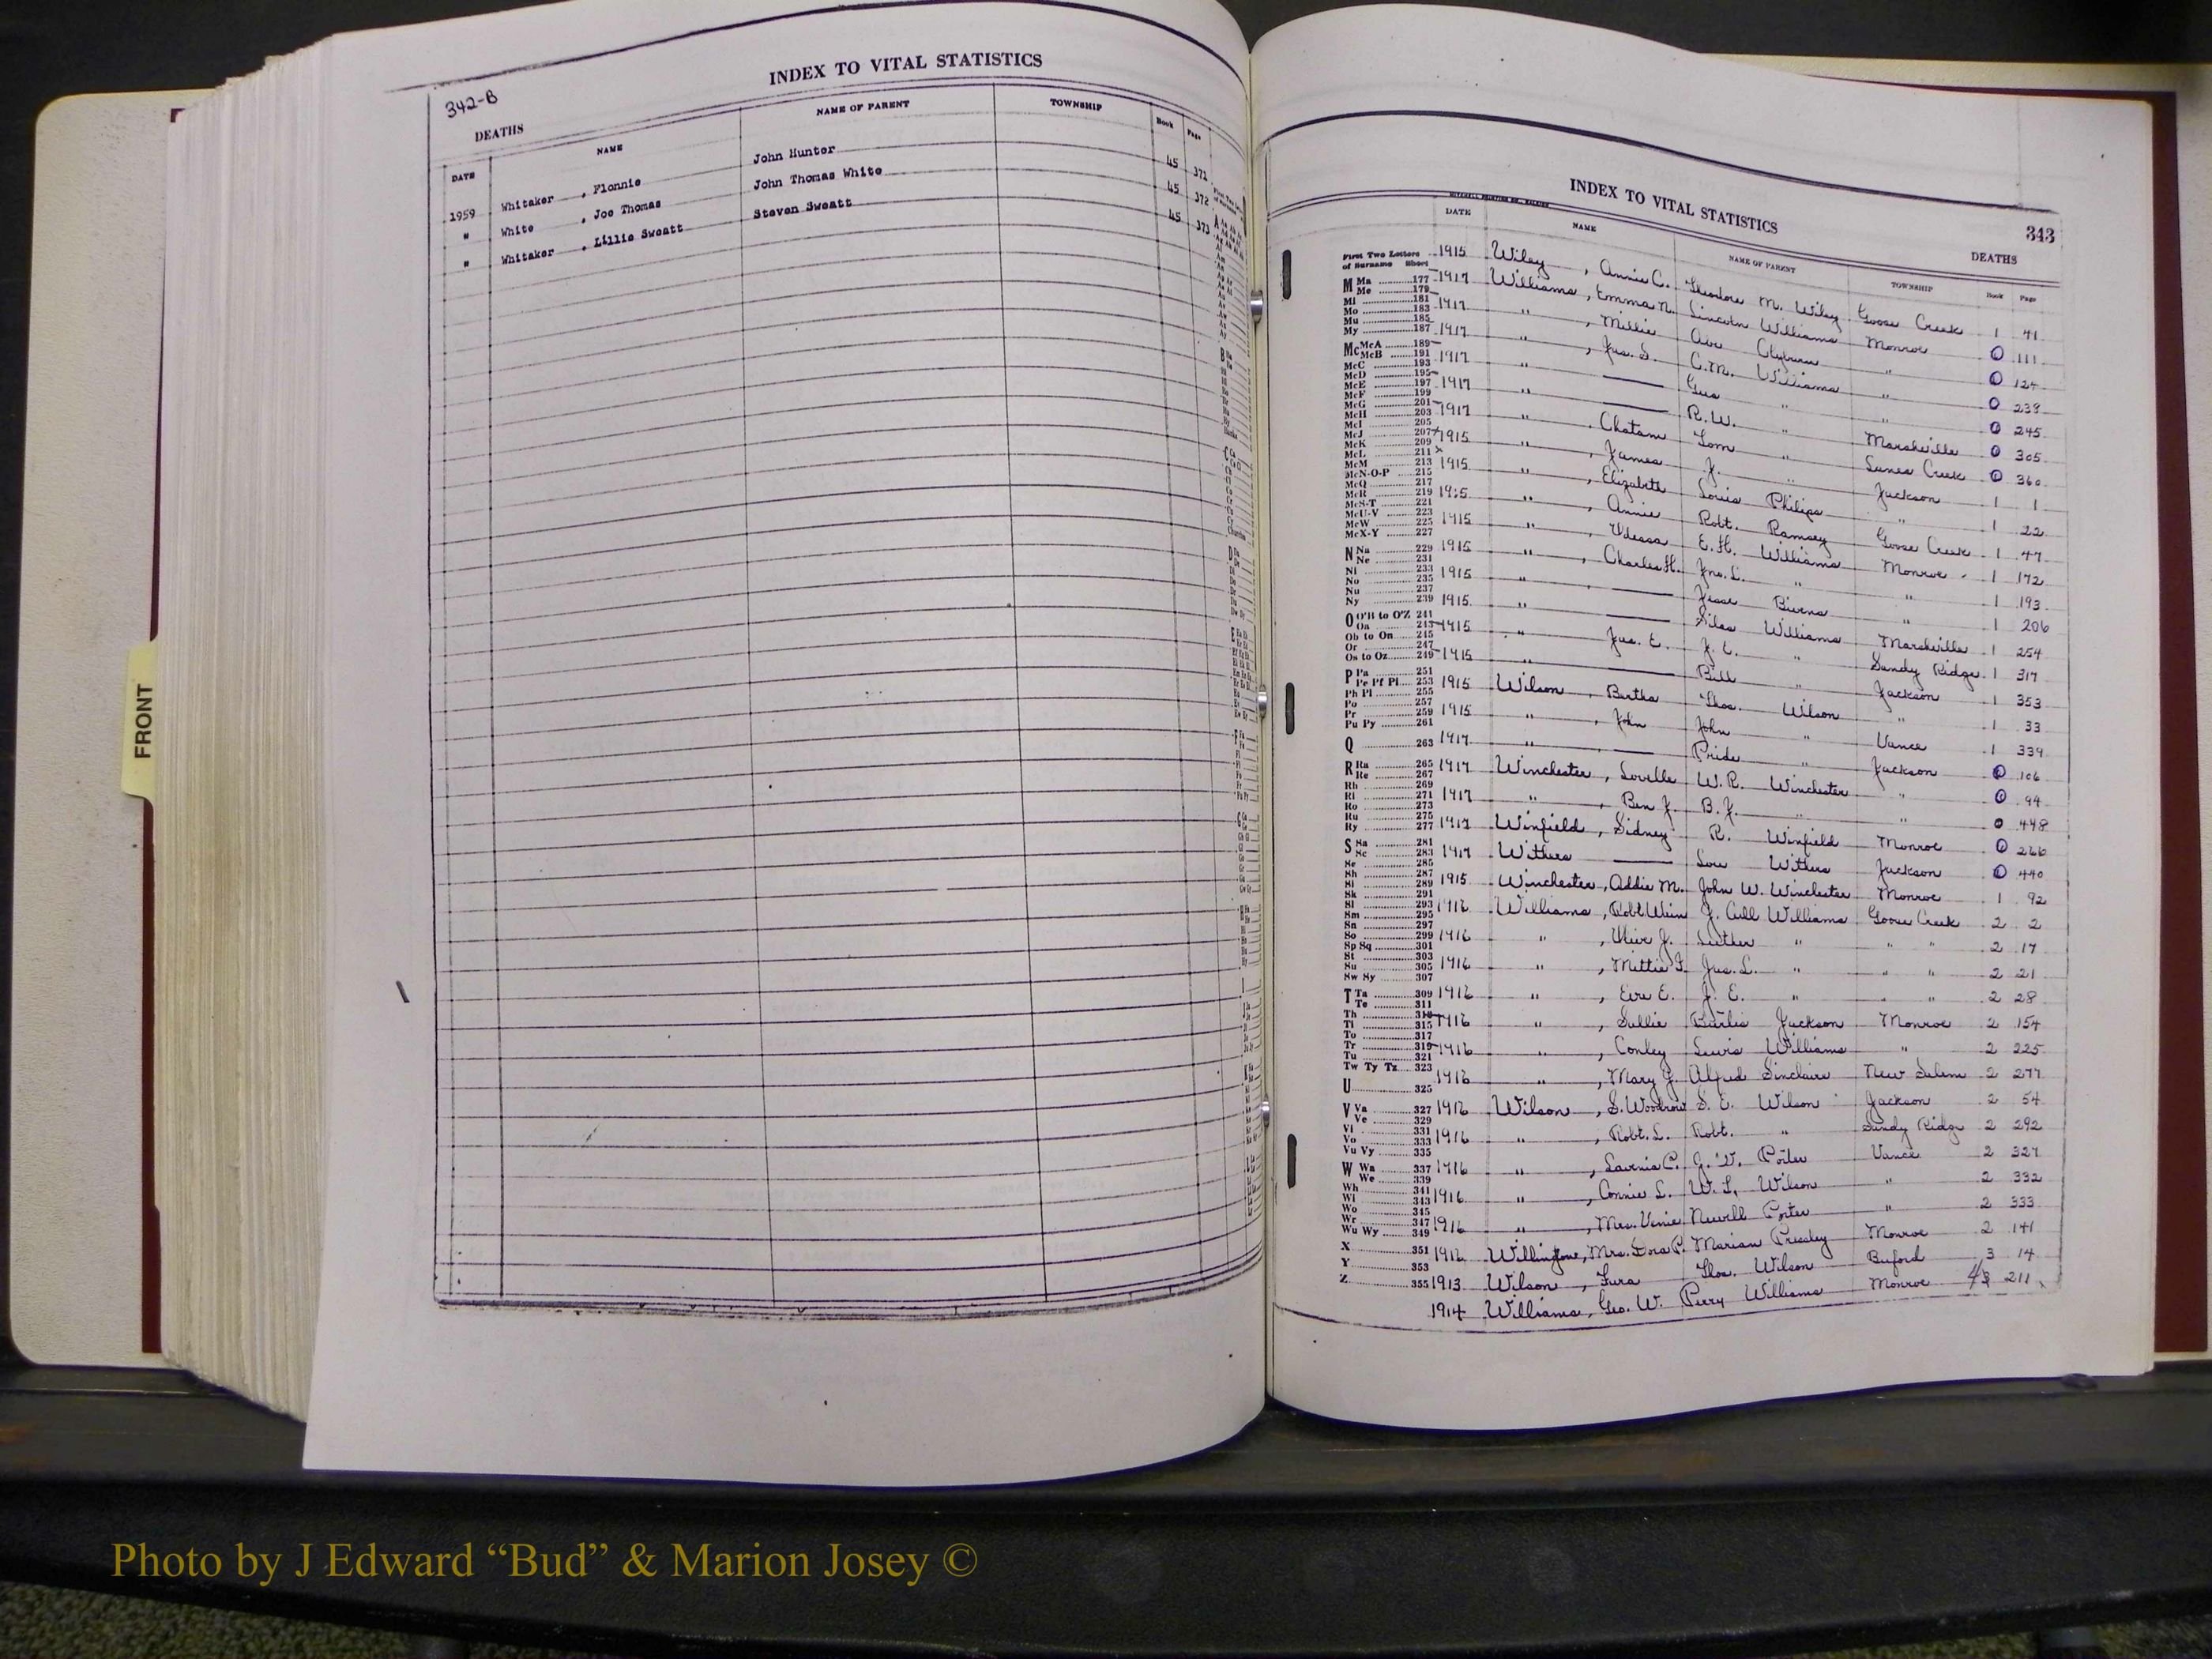 INDEX TO VITAL STATISTICS
342-B
DEATHS
DATE NAME NAME OF PARENT TOWNSHIP Book Page
1959 Whitaker , Flonnie John Hunter 45 371
" White , Joe Thomas John Thomas White 45 372
" Whitaker , Lillie Sweatt Steven Sweatt 45 373
FRONT
INDEX TO VITAL STATISTICS
343
DEATHS
DATE NAME NAME OF PARENT TOWNSHIP Book Page
First Two Letters
of Surname Sheet
1915 Wiley , Annie C. Theodore M. Wiley Goose Creek 1 41
1917 Williams , Emma N. Lincoln Williams Monroe 0 111
1917 " , Millie Ave Clyburn " 0 124
1917 " , Jas. S. C.M. Williams " 0 239
1917 " — Gus " 0 245
1917 " — R.W. " Marshville 0 305
1917 " , Chatam Tom " Lanes Creek 0 360
1915 " , James J. " Jackson 1 1
1915 " , Elizabeth Louis Philips " 1 22
1915 " , Annie Robt. Ramsey Goose Creek 1 47
1915 " , Odessa E.H. Williams Monroe 1 172
1915 " , Charles H. Jno. L. " " 1 193
1915 " — Jesse Bivens " 1 206
1915 " — Silas Williams Marshville 1 254
1915 " Jas. E. J. E. " Sandy Ridge 1 317
1915 " — Bill " Jackson 1 353
1915 Wilson , Bertha Thos. Wilson " 1 33
1915 " , John John " Vance 1 339
1917 " — Pride " Jackson 0 106
1917 Winchester , Lovelle W.R. Winchester " 0 94
1917 " , Ben J. B.J. " " 0 448
1917 Winfield , Sidney R. Winfield Monroe 0 266
1917 Withers — Lou Withers Jackson 0 440
1915 Winchester , Addie M. John W. Winchester Monroe 1 92
1916 Williams , Robt J. Cull Williams Goose Creek 2 2
1916 " , Olive J. Luther " " " 2 17
1916 " , Mittie F. Jas. L. " " " 2 21
1916 " , E. J. E. " " " 2 28
1916 " , Sallie Jackson Monroe 2 154
1916 " , Conley Lewis Williams " 2 225
1916 " , Mary J. Alfred Sinclair New Salem 2 277
1916 Wilson , S. Woodrow S. E. Wilson Jackson 2 54
1916 " , Robt. L. Robt. " Sandy Ridge 2 292
1916 " , Lavenia C. J. V. Porter Vance 2 327
1916 " , Connie L. W. L. Wilson " 2 332
1916 " , Mrs. Venie Newell Porter " 2 333
1916 , Mrs. Dora P. Marian Pressley Monroe 2 141
1913 Wilson , Fura Thos. Wilson Buford 3 14
1914 Williams , Geo. W. Perry Williams Monroe 211
M Ma 177
Me 179
Mi 181
Mo 183
Mu 185
My 187
Mc McA 189
McB 191
McC 193
McD 195
McE 197
McF 199
McG 201
McH 203
McI 205
McJ 207
McK 209
McL 211
McM 213
McN-O-P 215
McQ 217
McR 219
McS-T 221
McU-V 223
McW 225
McX-Y 227
N Na 229
Ne 231
Ni 233
No 235
Nu 237
Ny 239
O O'B to O'Z 241
Oa 243
Ob to On 245
Or 247
Os to Oz 249
P Pa 251
Pe Pf Pi 253
Ph Pl 255
Po 257
Pr 259
Pu Py 261
Q 263
R Ra 265
Re 267
Rh 269
Ri 271
Ro 273
Ru 275
Ry 277
S Sa 281
Sc 283
Se 285
Sh 287
Si 289
Sk 291
Sl 293
Sm 295
Sn 297
So 299
Sp Sq 301
St 303
Su 305
Sw Sy 307
T Ta 309
Te 311
Th 313
Ti 315
To 317
Tr 319
Tu 321
Tw Ty Tz 323
U 325
V Va 327
Ve 329
Vi 331
Vo 333
Vu Vy 335
W Wa 337
We 339
Wh 341
Wi 343
Wo 345
Wr 347
Wu Wy 349
X 351
Y 353
Z 355
Photo by J Edward “Bud” & Marion Josey ©